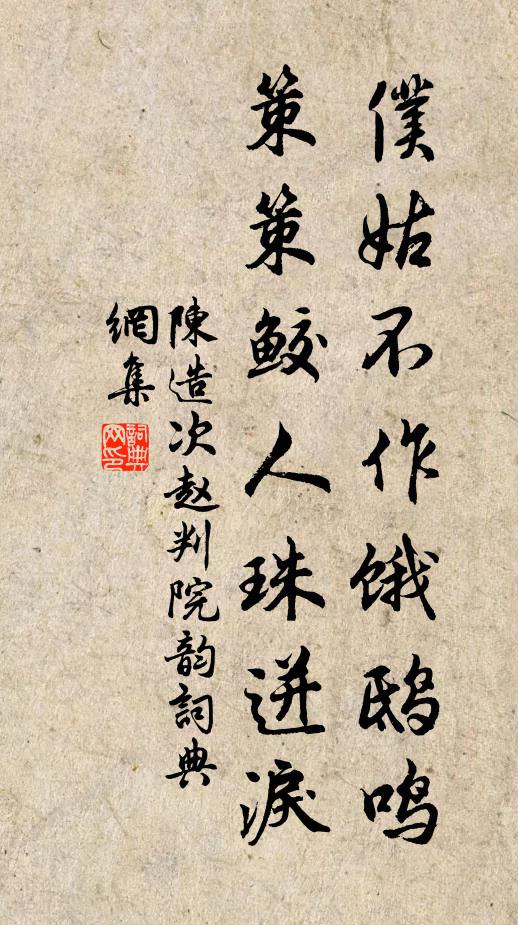 僕姑不作餓鴟鳴
策策鲛人珠迸淚
陳造次趙判院韵詞典
網集
詞典网印